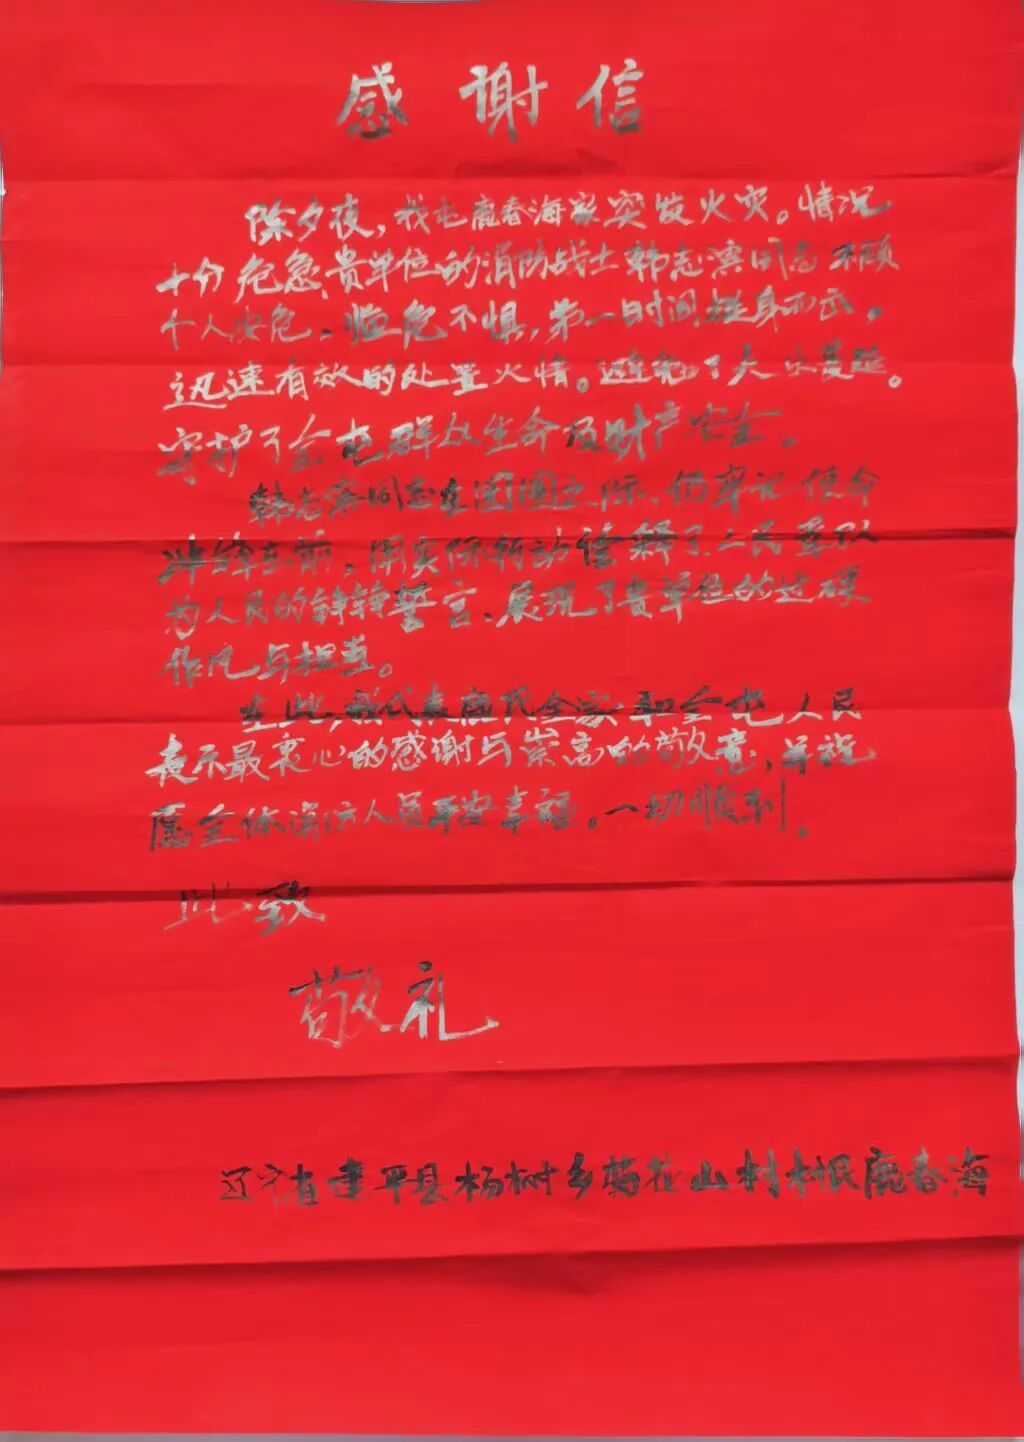 感谢信
除夕夜,我屯鹿春海家突发火灾。情况
十分危急,贵单位的消防战士韩志滨同志不顾
个人安危。临危不惧,第一时间挺身而出。
迅速有效的处置火情。避免了火灾蔓延。
守护了全屯群众生命及财产安全。
韩志滨同志在团圆之际,仍牢记使命
冲锋在前,用实际行动诠释了人民军队
为人民的铮铮誓言、展现了贵单位的过硬
作风与担当。
在此,我代表鹿氏全家和全屯人民
表示最衷心的感谢与崇高的敬意,并祝
愿全体消防人员平安幸福。一切顺利。
此致
敬礼
辽宁省建平县杨树乡菊花山村村民鹿春海